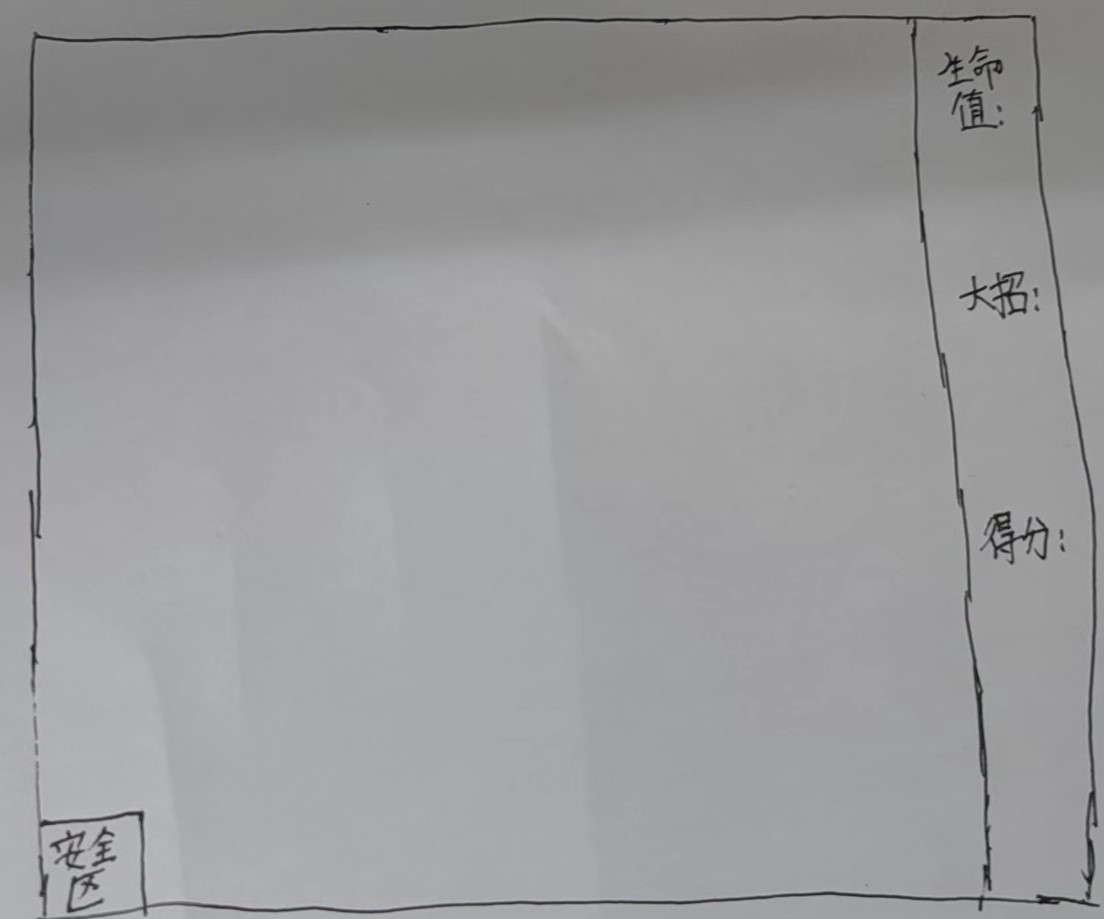 生命
值:
大招:
得分:
安全
区